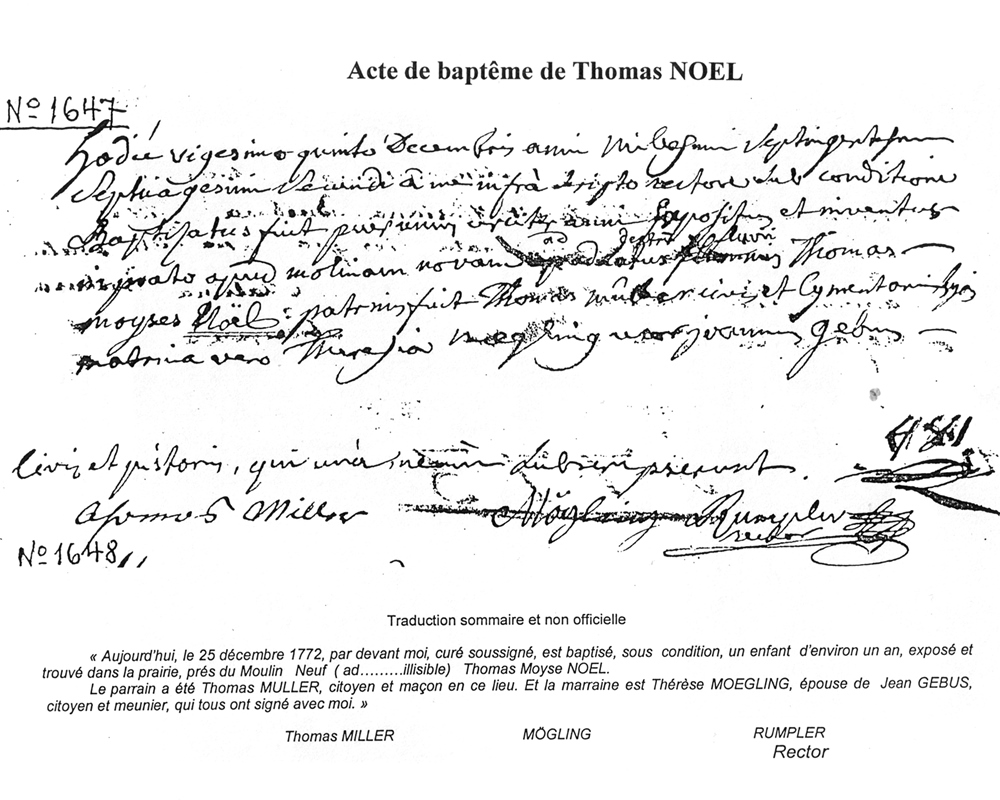 Acte de baptême de Thomas NOEL
Nº 1647
hodie vigesimo quinto Decembris anni millesimi Septingentesimi
Septuagesimi Secundi a me infrà scripto rectore sub conditione
Baptisatus fuit puer unius circiter anni Expositus et inventus
in prato apud molinam novam ad Thomas
moyses Noël patrinus fuit Thomas müller civis et Cÿmentarius
matrina vero Theresia mægling uxor joannis Gebus
civis et pistoris, qui unà mecum subscripserunt.
Thomas Miller Mögling Rumpler
rector
Nº 1648
Traduction sommaire et non officielle
« Aujourd'hui, le 25 décembre 1772, par devant moi, curé soussigné, est baptisé, sous condition, un enfant d'environ un an, exposé et
trouvé dans la prairie, prés du Moulin Neuf ( ad.........illisible) Thomas Moyse NOEL.
Le parrain a été Thomas MULLER, citoyen et maçon en ce lieu. Et la marraine est Thérèse MOEGLING, épouse de Jean GEBUS,
citoyen et meunier, qui tous ont signé avec moi. »
Thomas MILLER MÖGLING RUMPLER
Rector